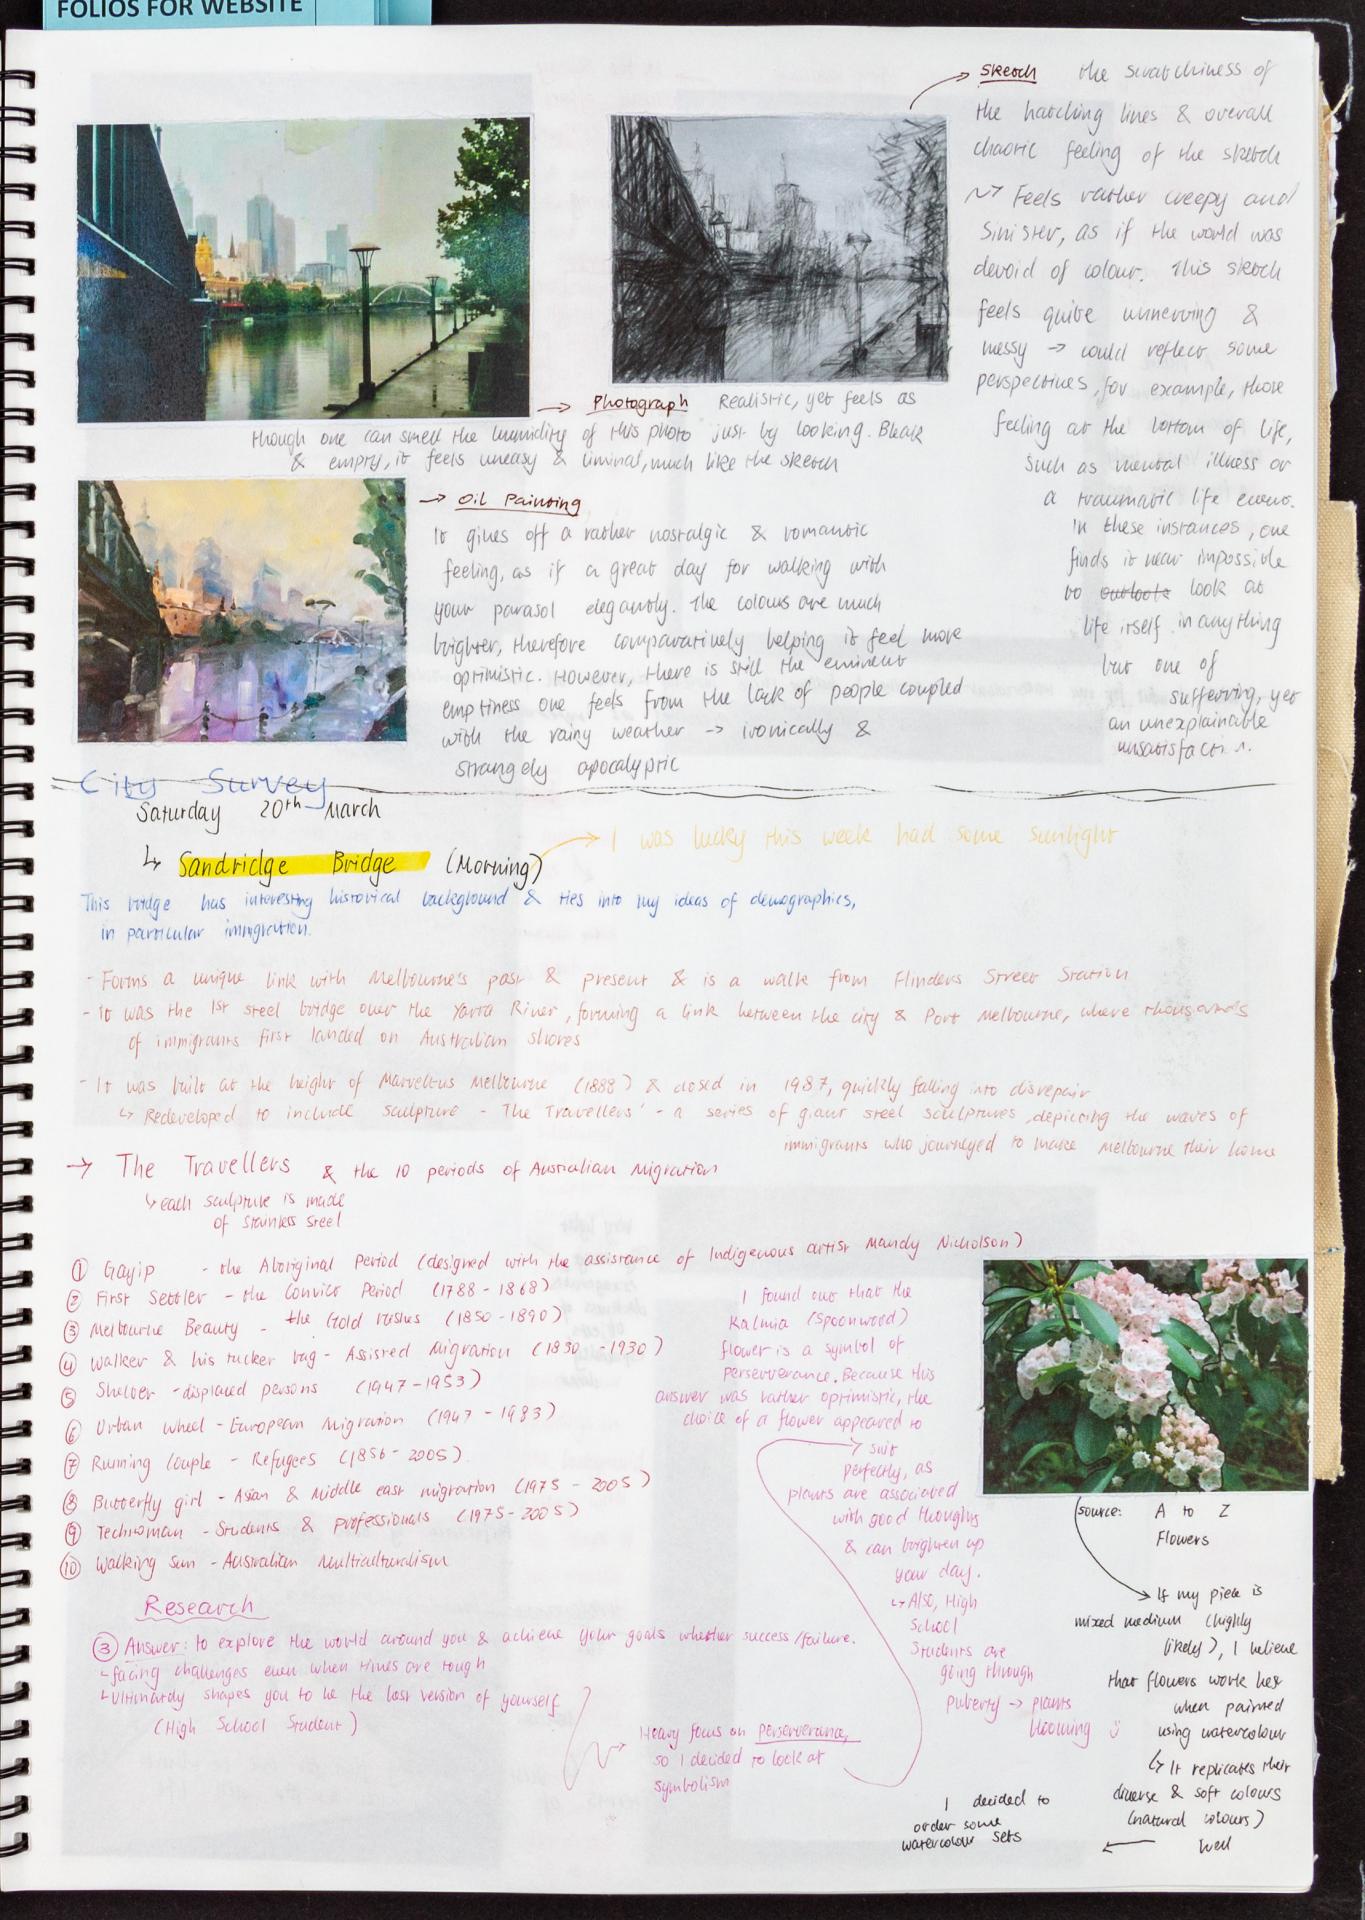 FOLIOS FOR WEBSITE
Sketch the scratchiness of
the hatching lines & overall
chaotic feeling of the sketch
~> Feels rather creepy and
sinister, as if the world was
devoid of colour. This sketch
feels quite unnerving &
messy → could reflect some
perspectives, for example, those
feeling at the bottom of life,
such as mental illness or
a traumatic life event.
In these instances, one
finds it near impossible
to outlook look at
life itself in anything
but one of
suffering, yet
an unexplainable
unsatisfaction.
→ Photograph Realistic, yet feels as
though one can smell the humidity of this photo just by looking. Bleak
& empty, it feels uneasy & liminal, much like the sketch
→ Oil Painting
It gives off a rather nostalgic & romantic
feeling, as if a great day for walking with
your parasol elegantly. The colours are much
brighter, therefore comparatively helping it feel more
optimistic. However, there is still the eminent
emptiness one feels from the lack of people coupled
with the rainy weather → ironically &
strangely apocalyptic
City Survey
Saturday 20th March
↳ Sandridge Bridge (Morning) → I was lucky this week had some sunlight
This bridge has interesting historical background & ties into my ideas of demographics,
in particular immigration.
- Forms a unique link with Melbourne's past & present & is a walk from Flinders Street Station
- It was the 1st steel bridge over the Yarra River, forming a link between the city & Port Melbourne, where thousands
of immigrants first landed on Australian shores
- It was built at the height of Marvellous Melbourne (1888) & closed in 1987, quickly falling into disrepair
↳ Redeveloped to include sculpture - 'The Travellers' - a series of giant steel sculptures, depicting the waves of
immigrants who journeyed to make Melbourne their home
→ The Travellers & the 10 periods of Australian Migration
↳ each sculpture is made
of stainless steel
① Gayip - the Aboriginal Period (designed with the assistance of Indigenous artist Mandy Nicholson)
② First Settler - the Convict Period (1788 - 1868)
③ Melbourne Beauty - the Gold rushes (1850 - 1890)
④ Walker & his tucker bag - Assisted Migration (1830 - 1930)
⑤ Shelter - displaced persons (1947 - 1953)
⑥ Urban wheel - European Migration (1947 - 1983)
⑦ Running Couple - Refugees (1856 - 2005)
⑧ Butterfly girl - Asian & Middle east migration (1975 - 2005)
⑨ Technoman - Students & professionals (1975 - 2005)
⑩ Walking sun - Australian Multiculturalism
I found out that the
Kalmia (Spoonwood)
flower is a symbol of
perserverance. Because this
answer was rather optimistic, the
choice of a flower appeared to
suit
perfectly, as
plants are associated
with good thoughts
& can brighten up
your day.
↳ Also, High
School
Students are
going through
puberty → plants
blooming
source: A to Z
Flowers
→ If my piece is
mixed medium (highly
likely), I believe
that flowers work best
when painted
using watercolour
↳ It replicates their
diverse & soft colours
(natural colours)
well
I decided to
order some
watercolour sets
Research
③ Answer: to explore the world around you & achieve your goals whether success/failure.
- facing challenges even when times are tough
- Ultimately shapes you to be the best version of yourself
(High School Student)
Heavy focus on perserverance,
so I decided to look at
symbolism